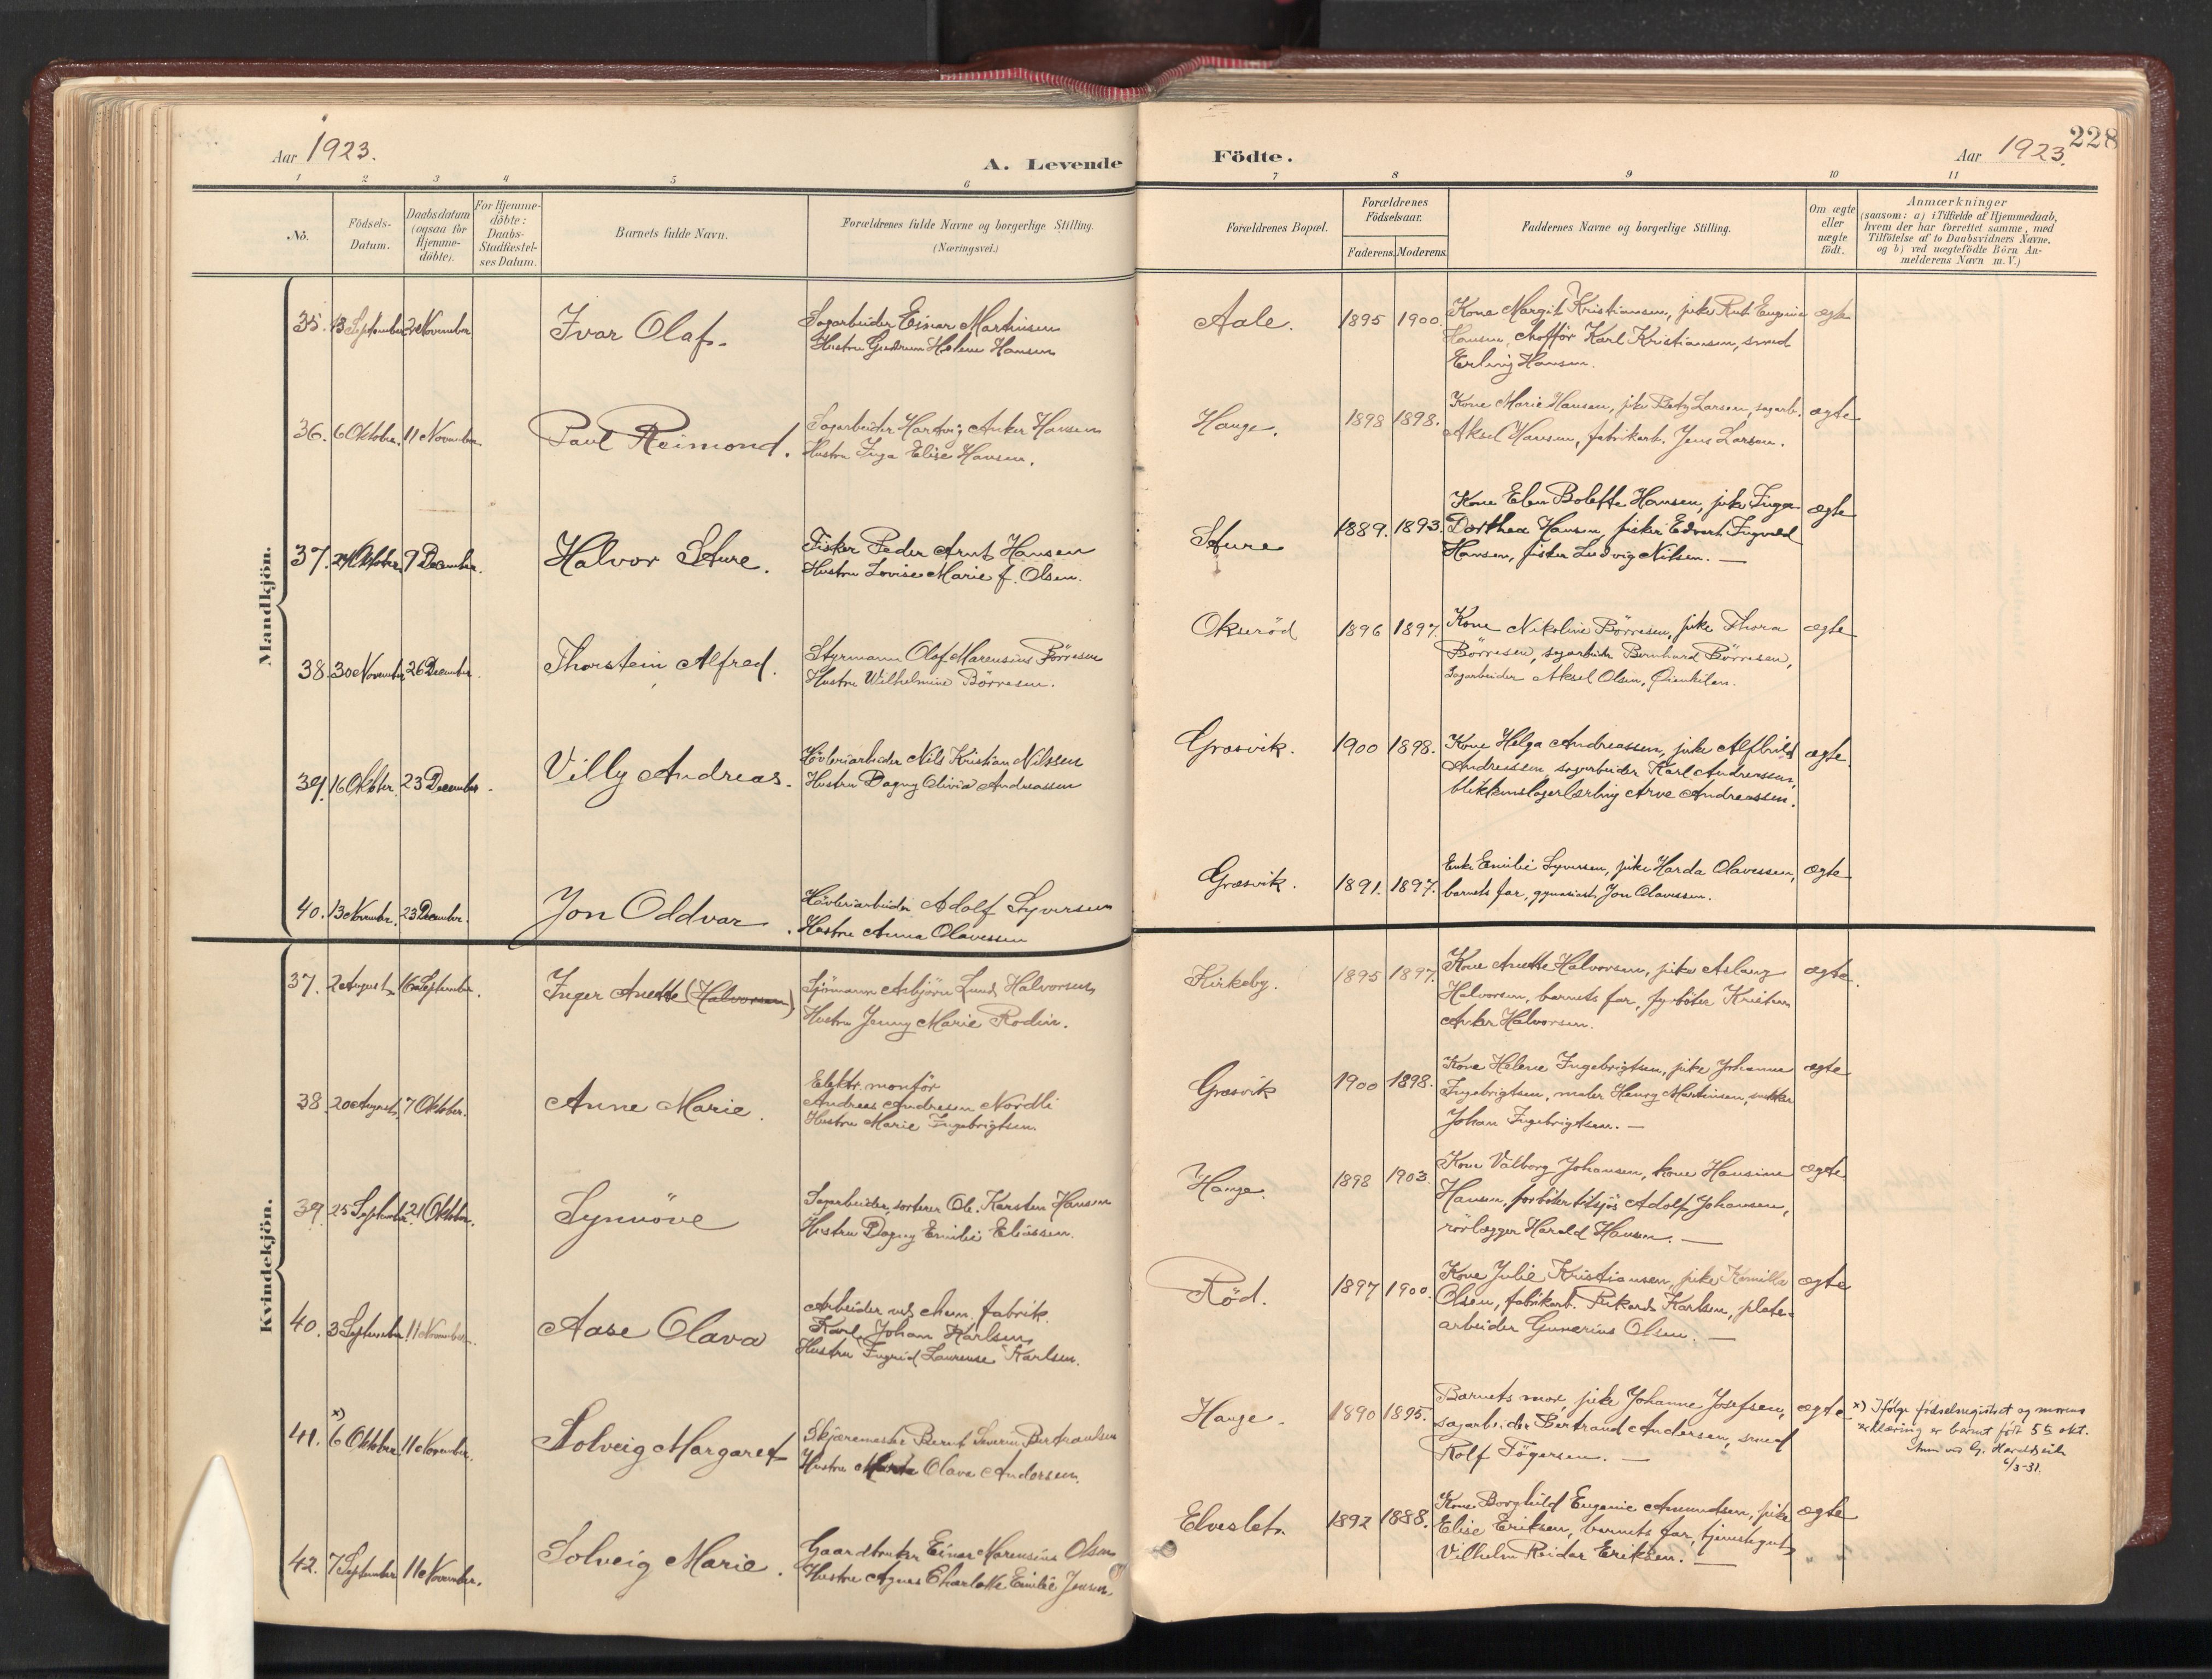 Aar 1923.
A. Levende
Födte.
Aar 1923.
228
1 2 3 4 5 6 7 8 9 10 11
No.
Födsels-
Datum.
Daabsdatum
(ogsaa for
Hjemme-
döbte).
For Hjemme-
döbte:
Daabs-
Stadfæstel-
ses Datum.
Barnets fulde Navn.
Forældrenes fulde Navne og borgerlige Stilling.
(Næringsvei.)
Forældrenes Bopæl.
Forældrenes
Födselsaar.
Faderens.
Moderens.
Faddernes Navne og borgerlige Stilling.
Om ægte
eller
uægte
födt.
Anmærkninger
(saasom: a) i Tilfælde af Hjemmedaab,
hvem der har forrettet samme, med
Tilföielse af to Daabsvidners Navne.
og b) ved uægtefödte Börn An-
melderens Navn m. V.)
Mandkjön.
35. 13 September 2 November
Ivar Olaf.
Sagarbeider Einar Martinsen
Hustru Gudrun Helene Hansen
Aale.
1895 1900.
Kone Margit Kristiansen, pike Rut Eugenie
Hansen, chofför Karl Kristiansen, smed
Erling Hansen.
ægte
36. 6 Oktober. 11 November
Paul Reimond.
Sagarbeider Hartvig Anker Hansen
Hustru Inga Elise Hansen.
Hauge.
1898 1898.
Kone Marie Hansen, pike Betzy Larsen, sagarb.
Aksel Hansen, fabrikarb. Jens Larsen.
ægte
37. 24 Oktober 9 December.
Halvor Sture.
Fisker Peder Arnt Hansen
Hustru Lovise Marie f. Olsen.
Sture
1889. 1893.
Kone Elen Bolette Hansen, pike Inga
Dorthea Hansen, fisker Edvart Ingvald
Hansen, fisker Ludvig Nilsen. —
ægte
38. 30 November 26 December.
Thorstein Alfred.
Styrmann Olaf Marensius Börresen
Hustru Wilhelmine Börresen.
Okseröd
1896 1897.
Kone Nikoline Börresen, pike Thora
Börresen, sagarbeider Bernhard Börresen,
Sagarbeider Aksel Olsen, Öienkilen.
ægte
39. 16 Oktober. 23 December.
Villy Andreas.
Hövleriarbeider Nils Kristian Nilssen
Hustru Dagny Olivia Andreassen
Græsvik.
1900 1898.
Kone Helga Andreassen, pike Alfhild
Andreassen, sagarbeider Karl Andreassen,
blikkenslagerlærling Arve Andreassen.
ægte.
40. 13 November. 23 December.
Jon Oddvar.
Hövleriarbeider Adolf Syversen
Hustru Anna Olavessen
Græsvik.
1891. 1897.
Enke Emilie Syversen, pike Harda Olavessen,
barnets far, gymnasiast Jon Olavessen.
ægte
Kvindekjön.
37. 2 August 16 September.
Inger Anette (Halvorsen)
Sjömann Asbjörn Lund Halvorsen
Hustru Jenny Marie Rodin.
Kirkeby.
1895 1897.
Kone Anette Halvorsen, pike Aslaug
Halvorsen, barnets far, fyrböter Kristian
Anker Halvorsen.
ægte.
38. 20 August 7 Oktober.
Anne Marie.
Elektr. montör
Andreas Andresen Nordli
Hustru Marie Ingebrigtsen.
Græsvik
1900 1898.
Kone Helene Ingebrigtsen, pike Johanne
Ingebrigtsen, maler Henry Martinsen, snekker
Johan Ingebrigtsen. —
ægte
39. 25 September 21 Oktober.
Synnöve
Sagarbeider, sorterer Ole Karsten Hansen
Hustru Dagny Emilie Eliassen.
Hauge.
1898 1903.
Kone Valborg Johansen, kone Hansine
Hansen, fyrböter tilsjös Adolf Johansen,
rörlægger Harald Hansen. —
ægte
40. 3 September 11 November.
Aase Olava
Arbeider ved chem. fabrik.
Karl Johan Karlsen
Hustru Ingrid Laurense Karlsen.
Röd.
1897 1900.
Kone Julie Kristiansen, pike Kamilla
Olsen, fabrikarb. Rikard Karlsen, plate-
arbeider Gunerius Olsen. —
ægte
41. x) 6 Oktober 11 November.
Solveig Margaret
Skjæremester Bernt Severin Bertrandsen
Hustru Olava Andersen.
Hauge.
1890 1895.
Barnets mor, pike Johanne Josefsen,
sagarbeider Bertrand Andersen, smed
Rolf Tögersen. —
ægte
x) Ifölge födselsregistret og morens
erklæring er barnet födt 5te okt.
6/3-31.
42. 7 September 11 November.
Solveig Marie.
Gaardbruker Einar Marensius Olsen
Hustru Agnes Charlotte Emilie Jensen.
Elveslet.
1892 1888.
Kone Borghild Eugenie Amundsen, pike
Elise Eriksen, barnets far, tjenestegut
Vilhelm Reidar Eriksen. —
ægte